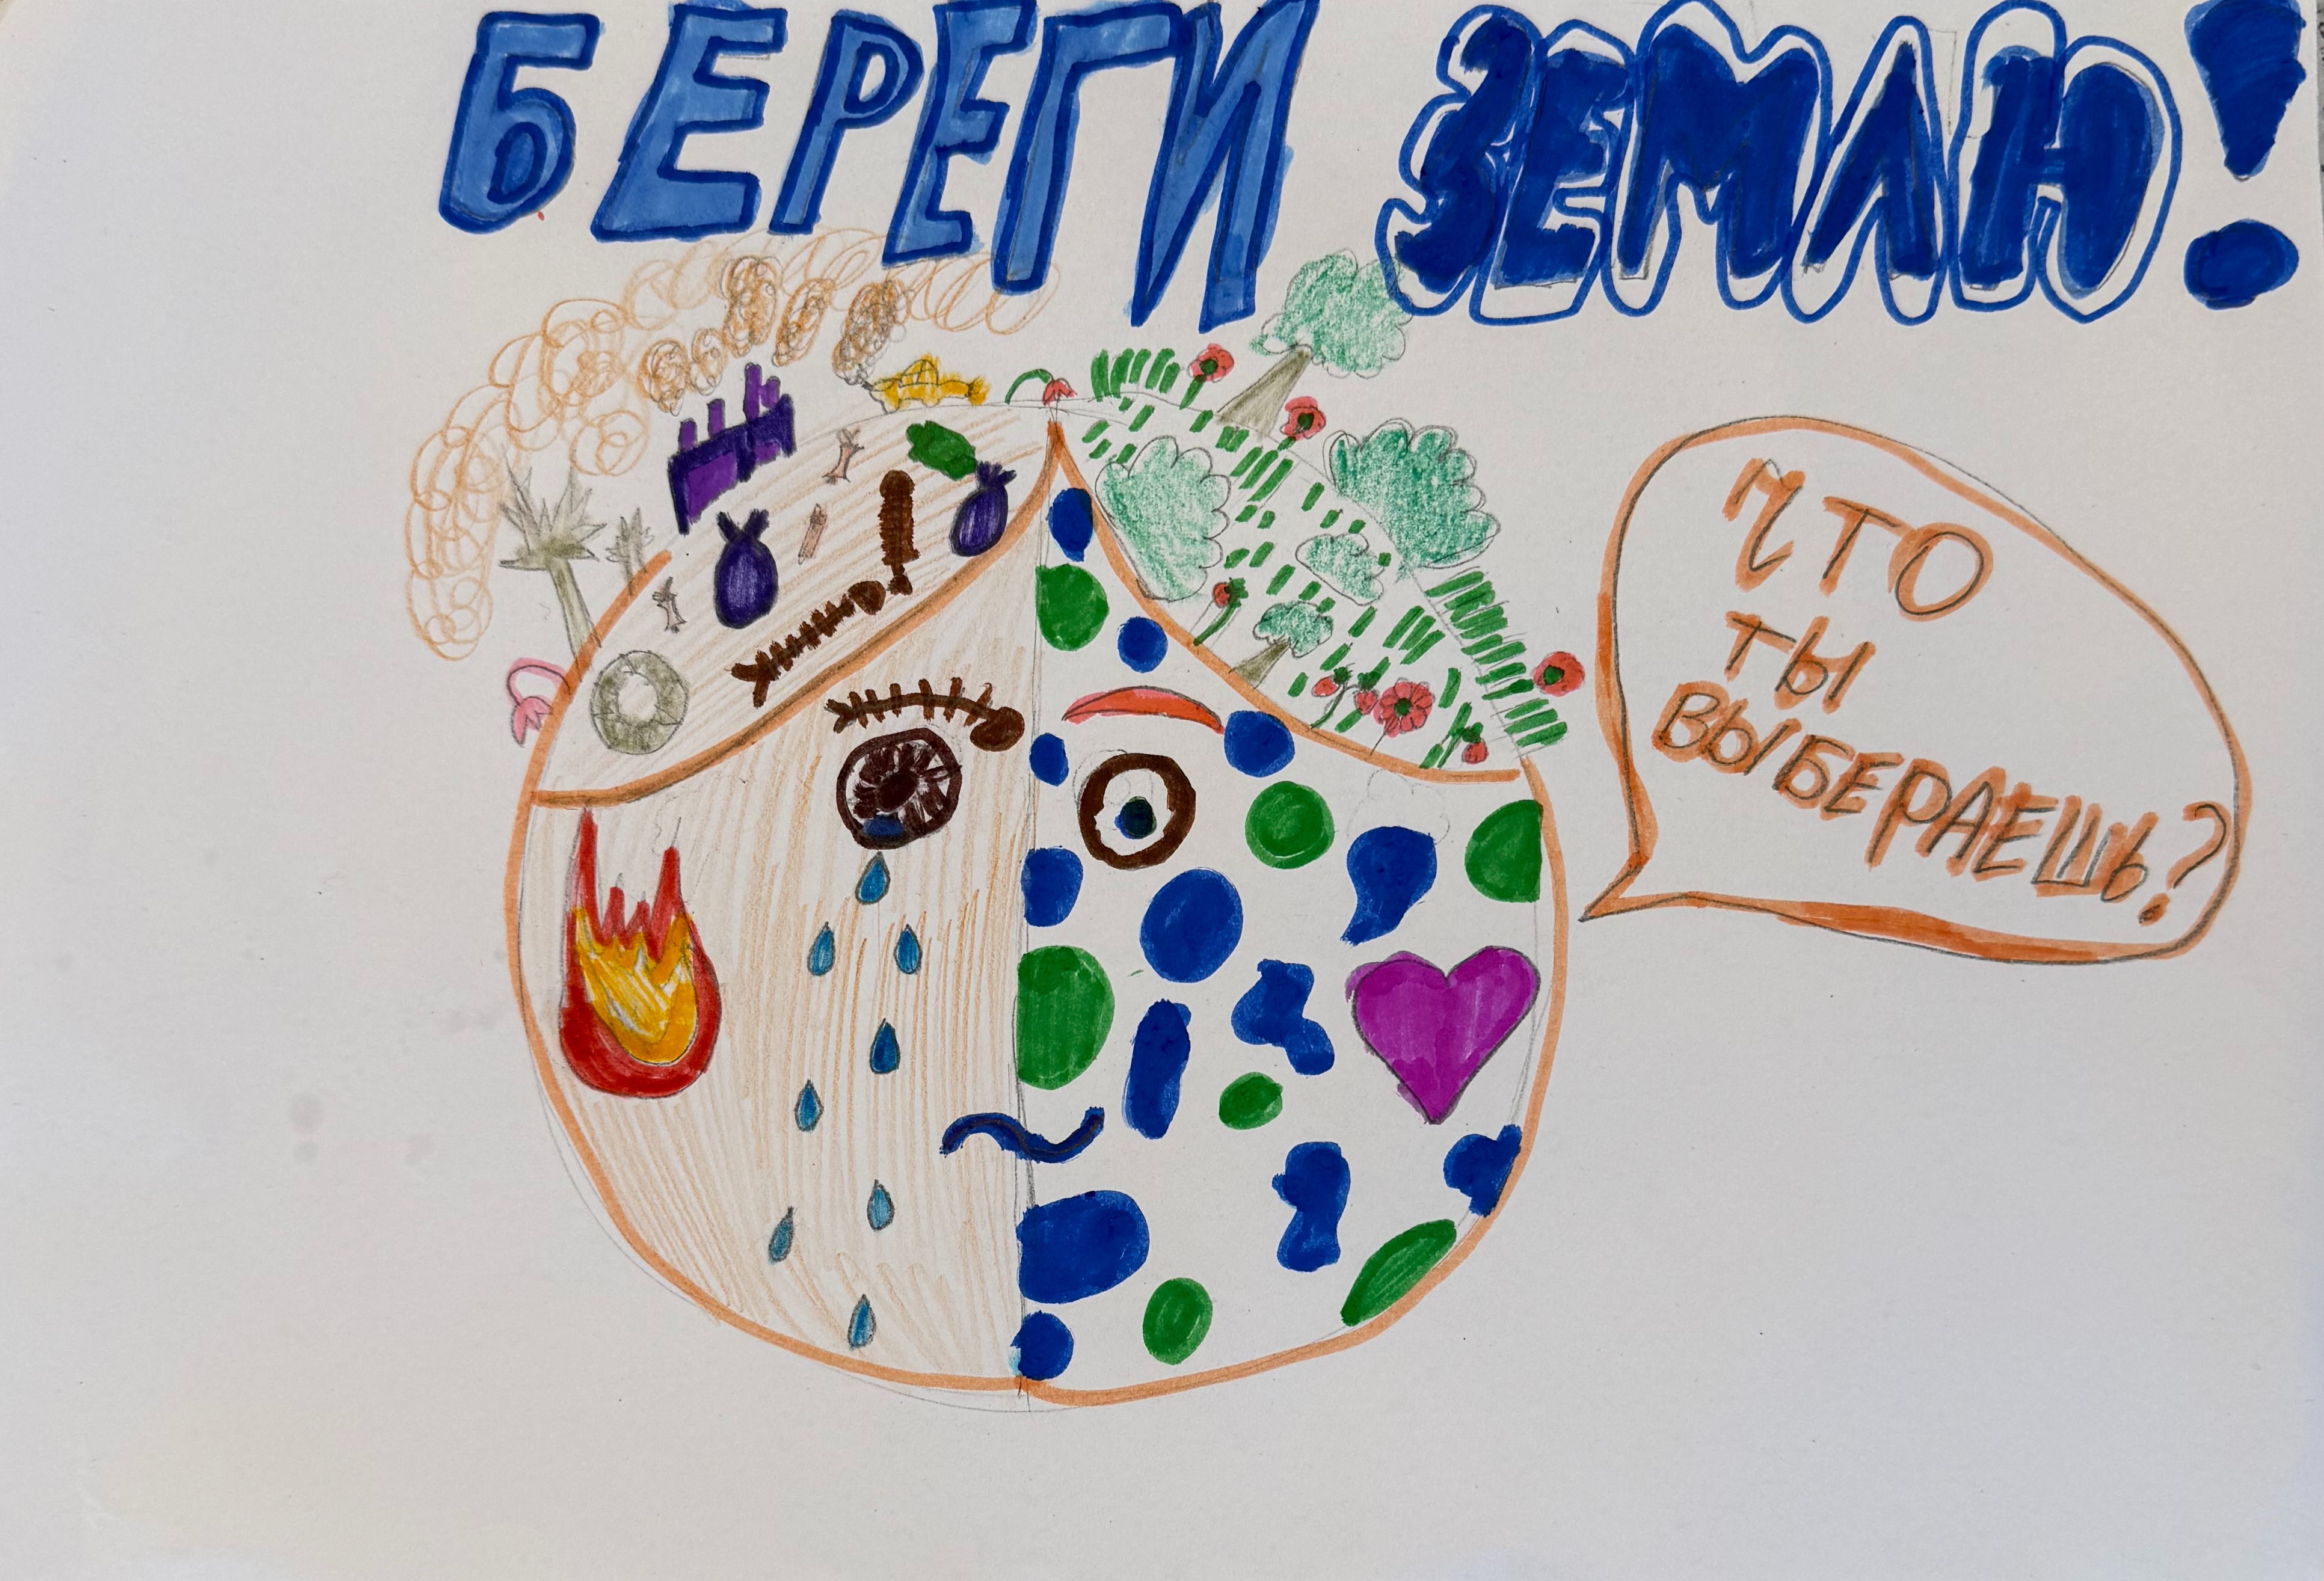 БЕРЕГИ ЗЕМЛЮ!
ЧТО
ТЫ
ВЫБЕРАЕШЬ?